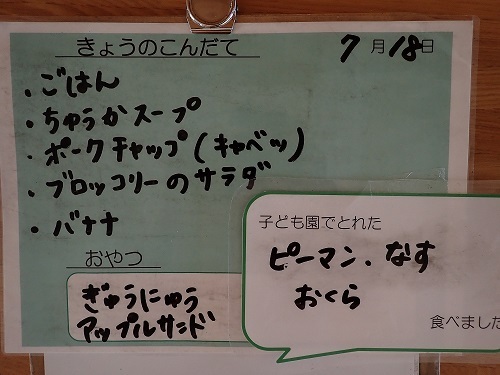 きょうのこんだて
7月18日
・ごはん
・ちゅうかスープ
・ポークチャップ(キャベツ)
・ブロッコリーのサラダ
・バナナ
おやつ
ぎゅうにゅう
アップルサンド
子ども園でとれた
ピーマン、なす
おくら
食べました